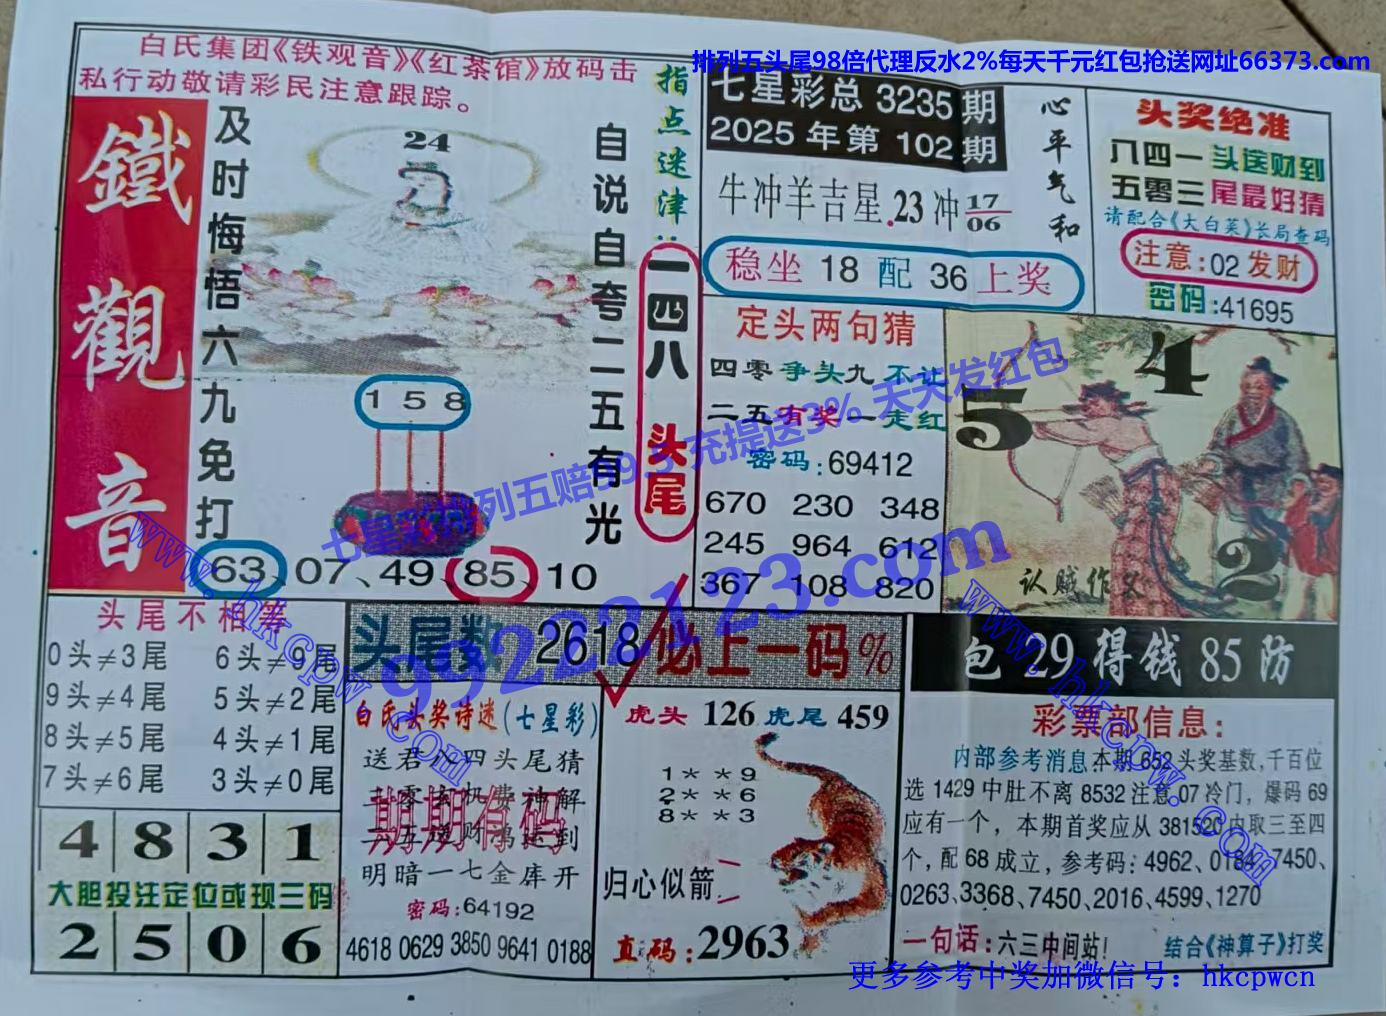 排列五头尾98倍代理反水2%每天千元红包抢送网址66373.com
白氏集团《铁观音》《红茶馆》放码击
私行动敬请彩民注意跟踪。
鐵觀音
及时悔悟六九免打
24
自说自夸二五有光
指点迷津:
一四八 头尾
158
63、07、49、85、10
七星彩总 3235 期
2025 年第 102 期
心平气和
牛冲羊吉星.23冲17/06
稳坐 18 配 36 上奖
头奖绝准
八四一 头送财到
五零三 尾最好猜
请配合《大白菜》长局查码
注意:02发财
密码:41695
定头两句猜
四零争头九不让
二五有奖一走红
密码:69412
670 230 348
245 964 612
367 108 820
5
4
2
认贼作父
七星彩排列五赔99.5 充提送3% 天天发红包
99222123.com
www.hkcpw.com
www.hkcpw.com
头尾不相等
0头≠3尾 6头≠9尾
9头≠4尾 5头≠2尾
8头≠5尾 4头≠1尾
7头≠6尾 3头≠0尾
4 8 3 1
大胆投注定位或现三码
2 5 0 6
头尾数 2618 必上一码%
白氏头奖诗迷(七星彩)
送君八四头尾猜
三零玄机费神解
二五发财鸿运到
明暗一七金库开
期期有码
密码:64192
4618 0629 3850 9641 0188
虎头 126 虎尾 459
1**9
2**6
8**3
归心似箭
直码:2963
包 29 得钱 85 防
彩票部信息:
内部参考消息本期 652 头奖基数,千百位
选 1429 中肚不离 8532 注意 07 冷门，爆码 69
应有一个，本期首奖应从 381520 内取三至四
个，配 68 成立，参考码：4962、0184、7450、
0263、3368、7450、2016、4599、1270
一句话：六三中间站！ 结合《神算子》打奖
更多参考中奖加微信号：hkcpwcn